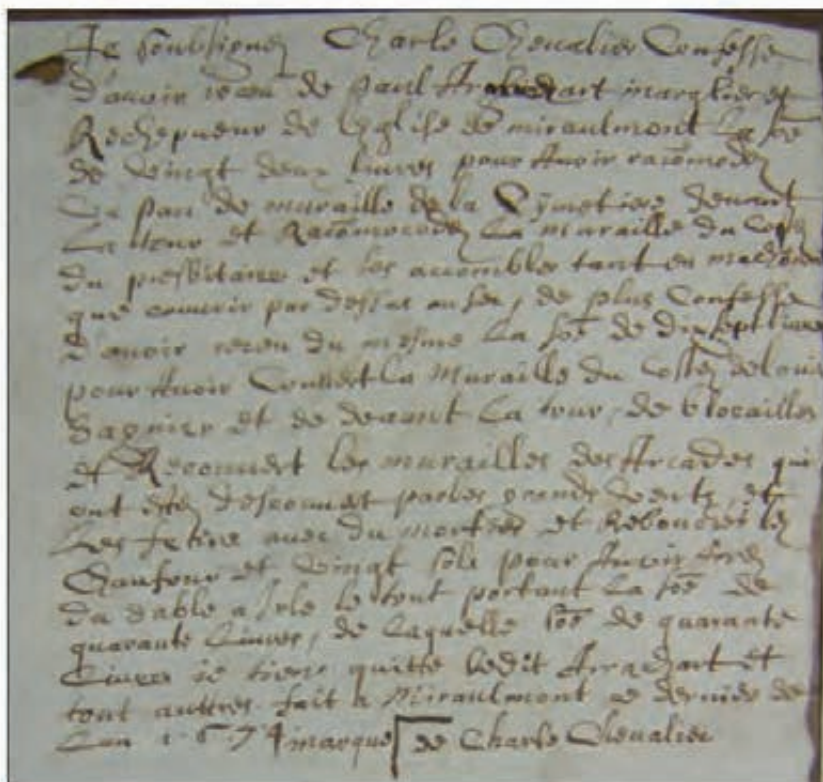 Je soubsignez Charle Chevalier Confesse
d'avoir receu de paul Arrachart marglier et
Recepveur de leglise de miraulmont la soe
de vingt deux livres pour Avoir racomodez
Le pan de muraille de la Cymetiere devant
La tour et Racomodez La muraille du costez
du presbitaire et les assembler tant en
que couvrir par dessus de plus Confesse
d'avoir receu du mesme La soe de dix sept livres
pour Avoir Couvert La Muraille du Costez de louis
Sagnier et de devant La tour, de blocailles
et Recouvert les murailles des Arcades qui
ont estez descouvert par les grands vents et
Les avec du mortier et Reboucher les
et vingt sols pour Avoir
du sable a le tout portant La soe de
quarante Livres, de Laquelle soe de quarante
Livres je tiens quitte ledit Arrachart et
tout auttres fait a Miraulmont ce dernier de
Lan 1674 marque de Charle Chevalier